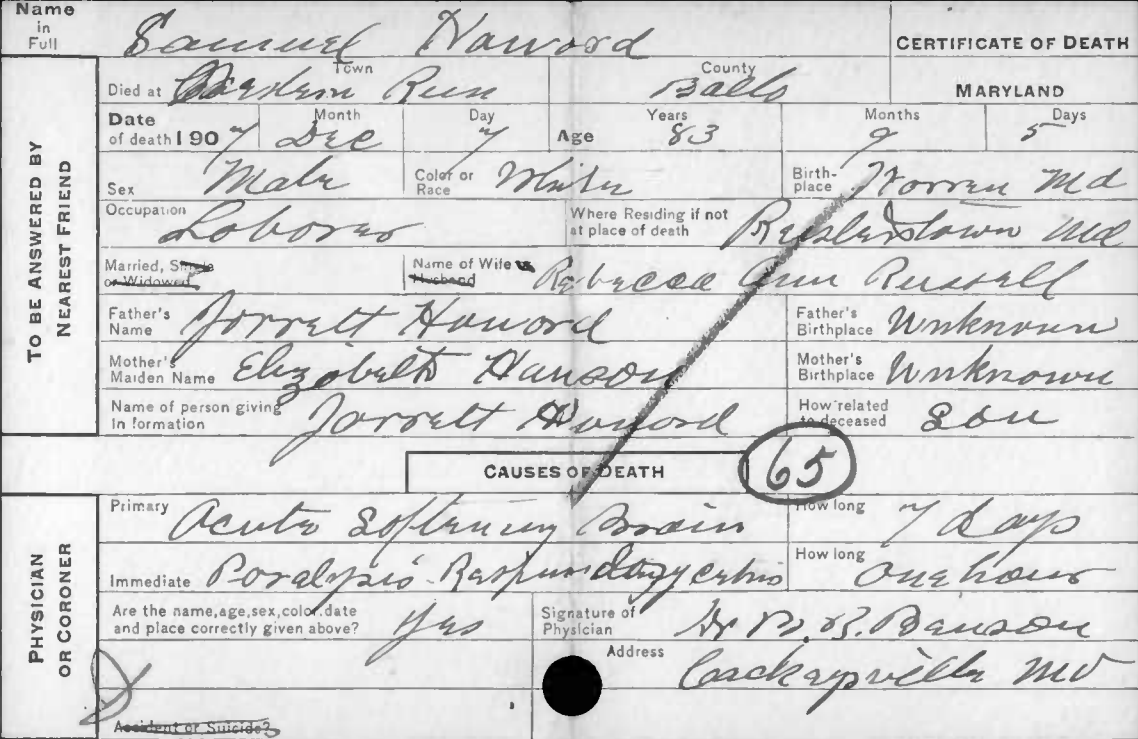 Name in Full Samuel Howard
CERTIFICATE OF DEATH
Died at Town Western Run County Balto MARYLAND
Date of death 1907 Month Dec Day 7 Age Years 83 Months 9 Days 5
Sex Male Color or Race White Birth-place Warren Md
Occupation Laborer Where Residing if not at place of death Reisterstown Md
Married, Single or Widowed Name of Wife or Husband Rebecca Ann Russell
Father's Name Jarrett Howard Father's Birthplace Unknown
Mother's Maiden Name Elizabeth Hanson Mother's Birthplace Unknown
Name of person giving In formation Jarrett Howard How related to deceased Son
TO BE ANSWERED BY NEAREST FRIEND
CAUSES OF DEATH 65
Primary Acute Softening Brain How long 7 days
Immediate Paralysis How long One hour
Are the name, age, sex, color, date and place correctly given above? Yes Signature of Physician Dr B. R. Benson
Address Cockeysville Md
Accident or Suicide?
PHYSICIAN OR CORONER